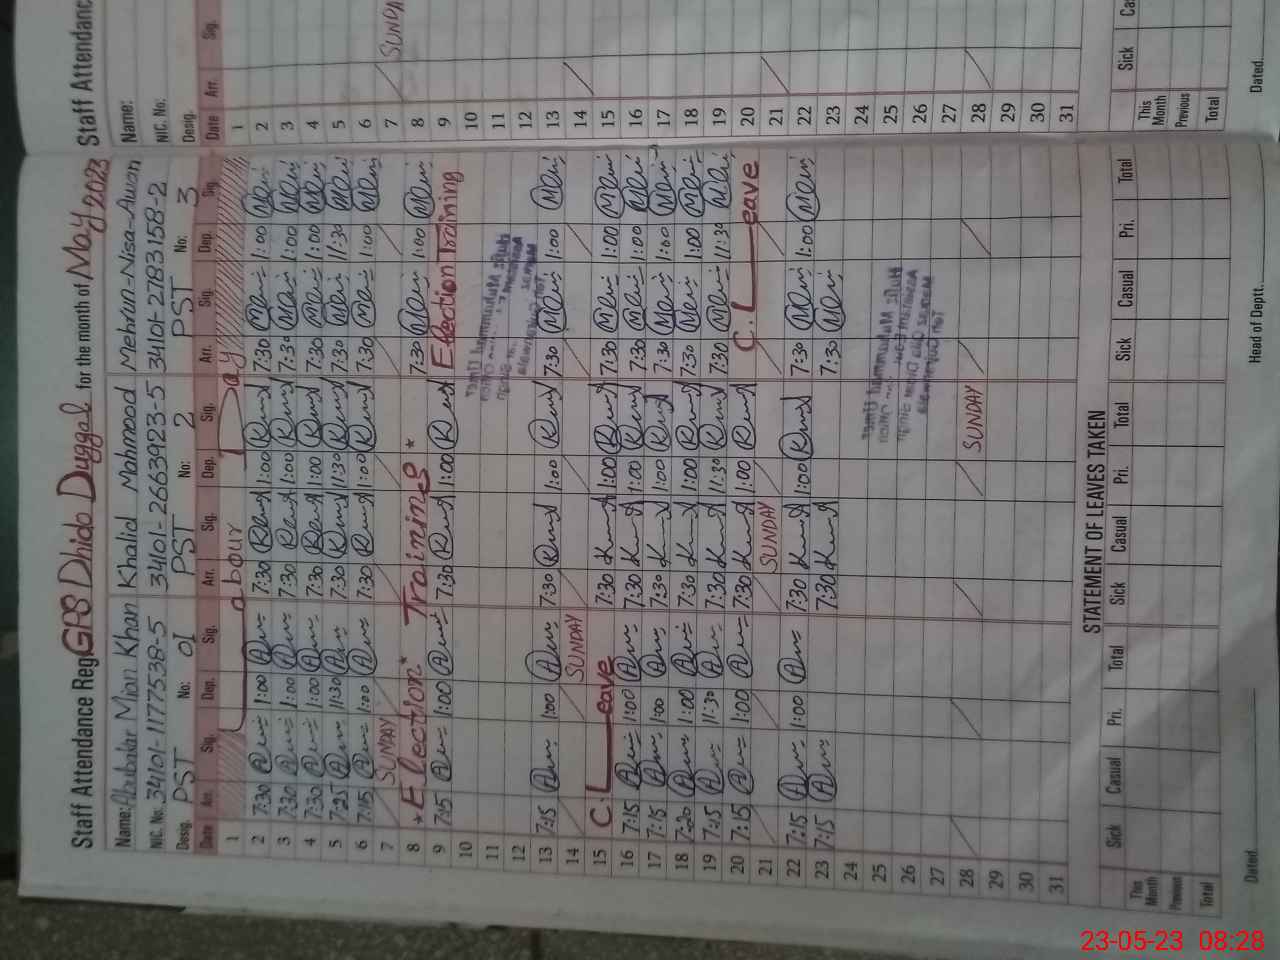 Staff Attendance Reg GPS Dhido Duggal for the month of May 2023
Name: Abubakar Mian Khan Khalid Mahmood Mehrun-Nisa-Awan
NIC. No: 34101-1177538-5 34101-2663923-5 34101-2783158-2
Desig. PST No: 01 PST No: 2 PST No: 3
Date Arr. Sig. Dep. Sig. Arr. Sig. Dep. Sig. Arr. Sig. Dep. Sig.
1 Labour Day
2 7:30 1:00 7:30 1:00 7:30 1:00
3 7:30 1:00 7:30 1:00 7:30 1:00
4 7:30 1:00 7:30 1:00 7:30 1:00
5 7:25 11:30 7:30 11:30 7:30 11:30
6 7:15 1:00 7:30 1:00 7:30 1:00
7 SUNDAY
8 * Election * Training * 7:30 1:00
9 7:15 1:00 7:30 1:00 Election Training
10
11
12
13 7:15 1:00 7:30 1:00 7:30 1:00
14 SUNDAY
15 C. Leave 7:30 1:00 7:30 1:00
16 7:15 1:00 7:30 1:00 7:30 1:00
17 7:15 1:00 7:30 1:00 7:30 1:00
18 7:20 1:00 7:30 1:00 7:30 1:00
19 7:15 11:30 7:30 11:30 7:30 11:30
20 7:15 1:00 7:30 1:00 C. Leave
21 SUNDAY
22 7:15 1:00 7:30 1:00 7:30 1:00
23 7:15 7:30 7:30
24
25
26
27
28 SUNDAY
29
30
31
STATEMENT OF LEAVES TAKEN
Sick Casual Pri. Total Sick Casual Pri. Total Sick Casual Pri. Total
This Month
Previous
Total
Dated. Head of Deptt.
Staff Attendanc
Name:
NIC. No:
Desig.
Date Arr. Sig.
1
2
3
4
5
6
7 SUNDA
8
9
10
11
12
13
14
15
16
17
18
19
20
21
22
23
24
25
26
27
28
29
30
31
Sick Ca
This Month
Previous
Total
Dated.
23-05-23 08:28